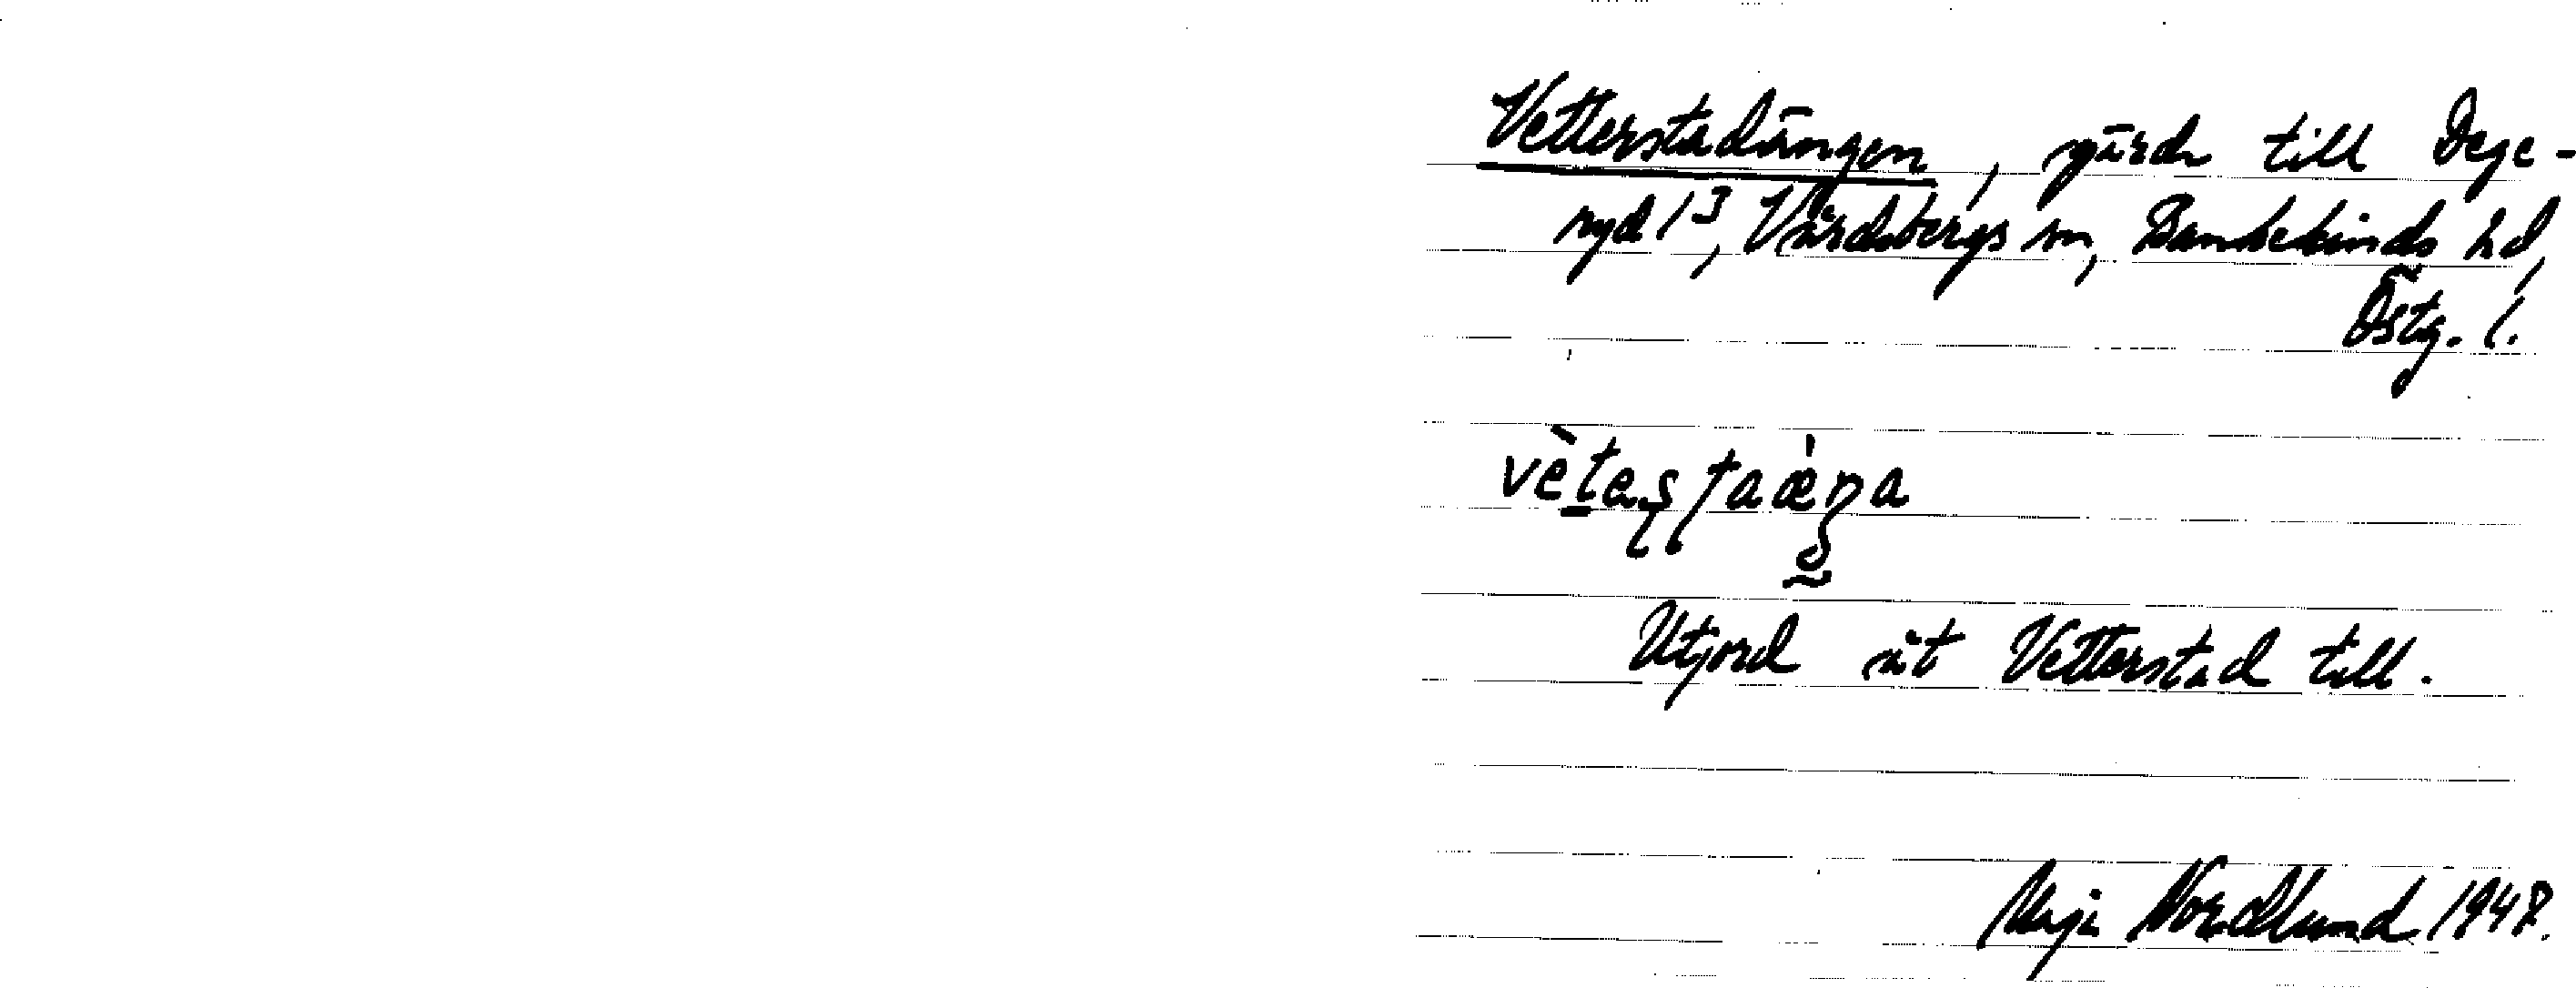 Vetterstadängen, gärde till Dege-
ryd 1³, Vårdsbergs sn, Bankekinds hd,
Östg. l.
Utjord åt Vetterstad till.
Maja Nordlund 1948.